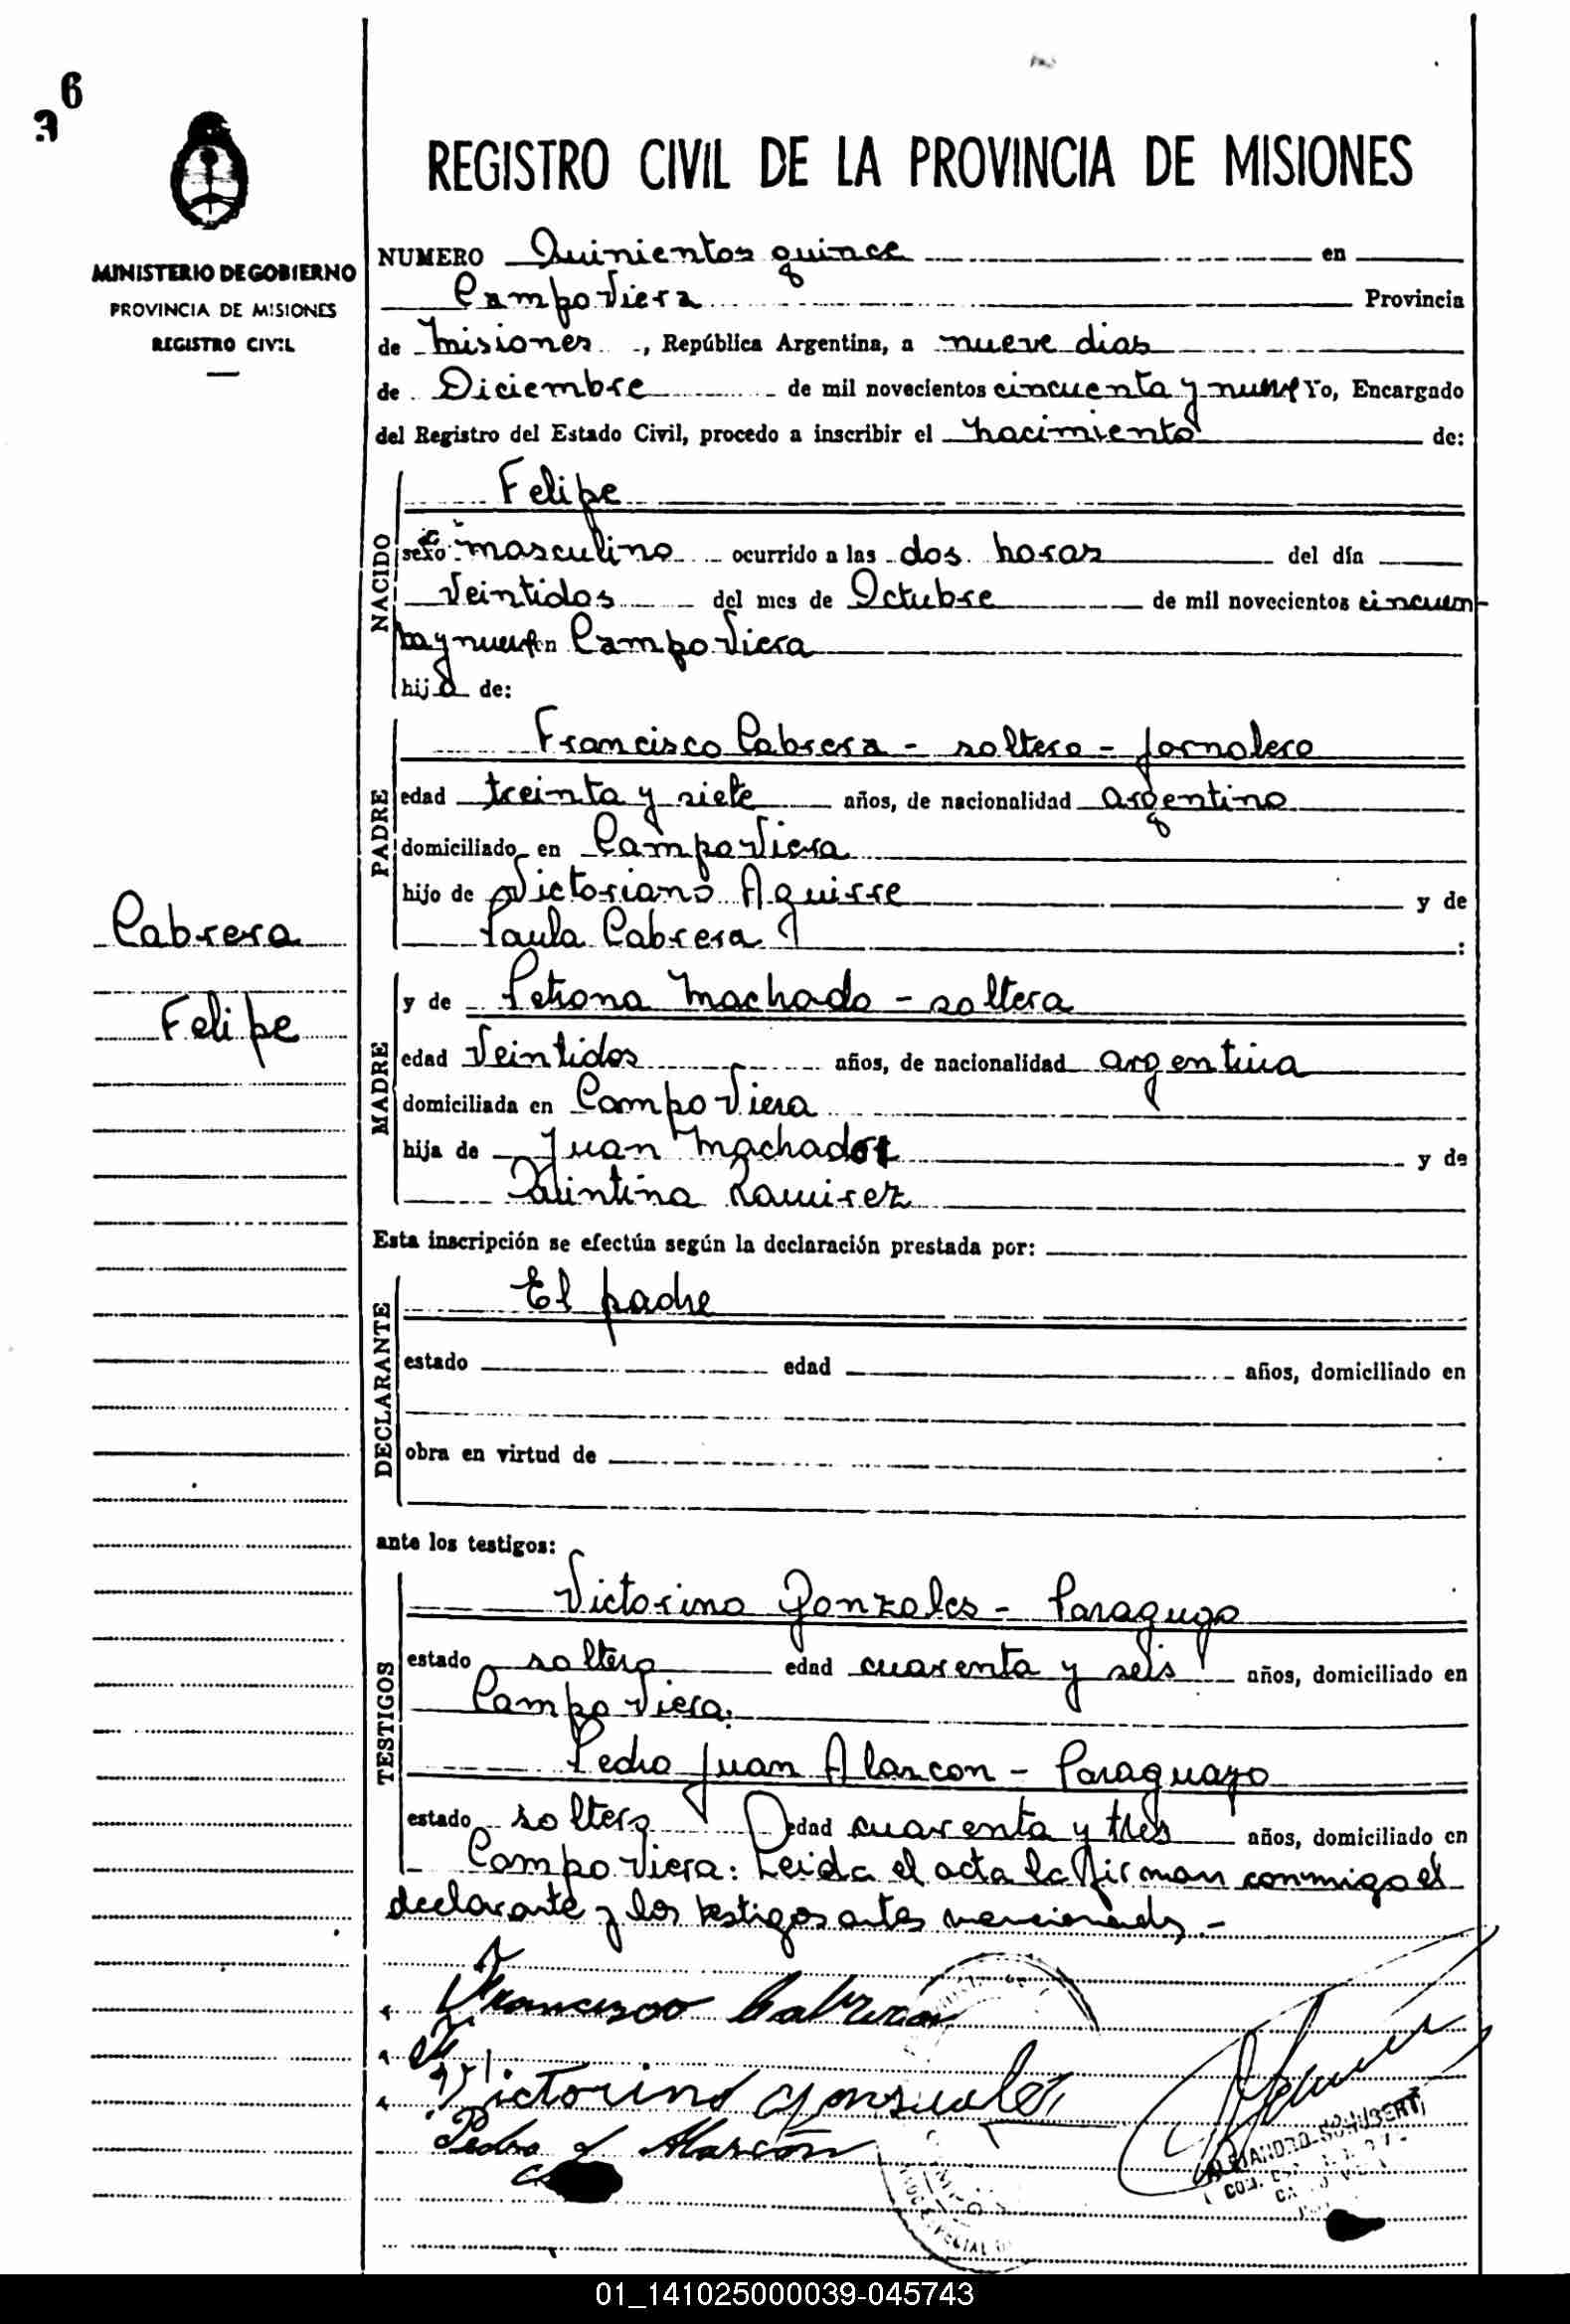 36
MINISTERIO DE GOBIERNO
PROVINCIA DE MISIONES
REGISTRO CIVIL
Cabrera
Felipe
REGISTRO CIVIL DE LA PROVINCIA DE MISIONES
NUMERO Quinientos quince en
Campo Viera Provincia
de Misiones, República Argentina, a nueve dias
de Diciembre de mil novecientos cincuenta y nueve Yo, Encargado
del Registro del Estado Civil, procedo a inscribir el nacimiento de:
NACIDO
Felipe
sexo masculino ocurrido a las dos horas del día
Veintidos del mes de Octubre de mil novecientos cincuen-
ta y nueve en Campo Viera
hijo de:
PADRE
Francisco Cabrera - soltero - jornalero
edad treinta y siete años, de nacionalidad argentino
domiciliado en Campo Viera
hijo de Victoriano Aguirre y de
Paula Cabrera :
MADRE
y de Petrona Machado - soltera
edad Veintidos años, de nacionalidad argentina
domiciliada en Campo Viera
hija de Juan Machado y de
Ramirez
Esta inscripción se efectúa según la declaración prestada por:
DECLARANTE
El padre
estado edad años, domiciliado en
obra en virtud de
ante los testigos:
TESTIGOS
Victorino Gonzales - Paraguyo
estado soltero edad cuarenta y seis años, domiciliado en
Campo Viera.
Pedro Juan Alarcon - Paraguayo
estado soltero edad cuarenta y tres años, domiciliado en
Campo Viera: Leida el acta la firman conmigo el
declarante y los testigos antes mencionados.-
Francisco Cabrera
Victorino Gonsales
Pedro J Alarcón
01_141025000039-045743